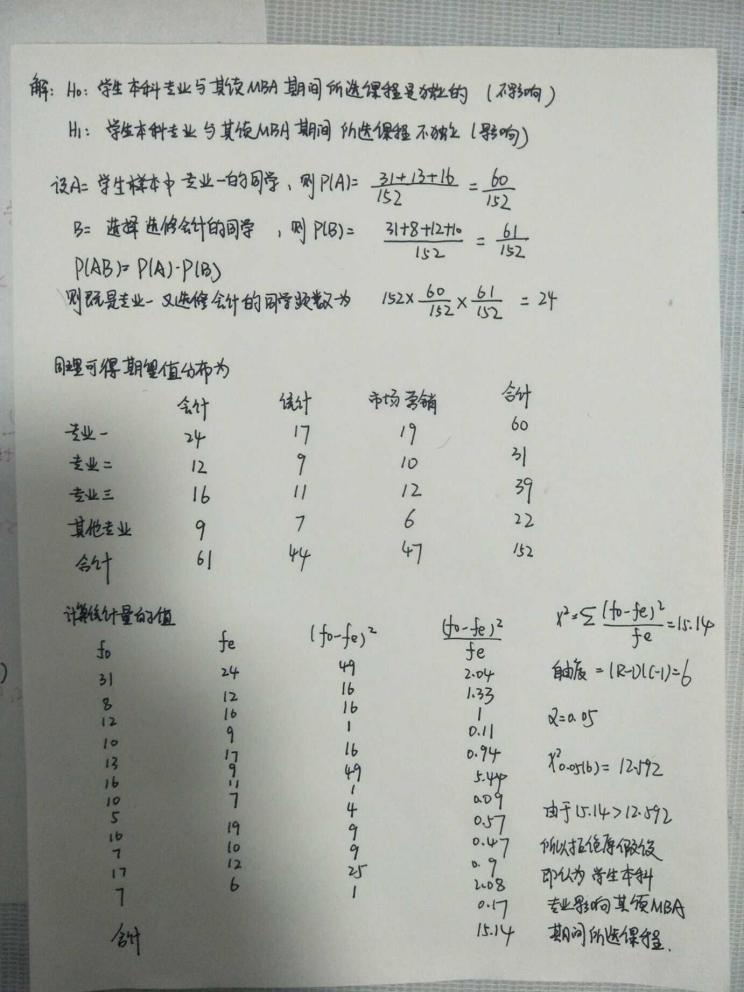 解: H₀: 学生本科专业与其读MBA期间所选课程是独立的 (不影响)
H₁: 学生本科专业与其读MBA期间所选课程不独立 (影响)
设A= 学生样本中专业一的同学, 则P(A)= (31+13+16)/152 = 60/152
B= 选择选修会计的同学, 则P(B)= (31+8+12+10)/152 = 61/152
P(AB)= P(A)·P(B)
则既是专业一又选修会计的同学频数为 152×60/152×61/152 = 24
同理可得期望值分布为
会计 统计 市场营销 合计
专业一 24 17 19 60
专业二 12 9 10 31
专业三 16 11 12 39
其他专业 9 7 6 22
合计 61 44 47 152
计算统计量的值
fo fe (fo-fe)² (fo-fe)²/fe
31 24 49 2.04
8 12 16 1.33
12 16 16 1
10 9 1 0.11
13 17 16 0.94
16 9 49 5.44
10 11 1 0.09
5 7 4 0.57
16 19 9 0.47
7 10 9 0.9
17 12 25 2.08
7 6 1 0.17
合计 15.14
χ²=Σ(fo-fe)²/fe=15.14
自由度=(R-1)(C-1)=6
α=0.05
χ²0.05(6)= 12.592
由于15.14>12.592
所以拒绝原假设
即认为学生本科
专业影响其读MBA
期间所选课程.